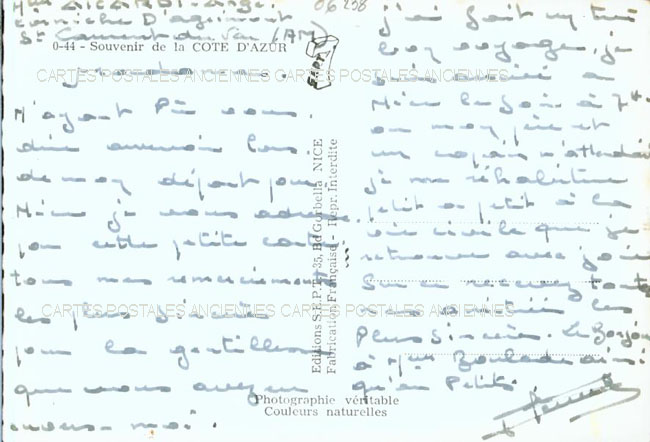 Mme AICARDI Ange
Corniche D'agrimont
St Laurent du Var (AM)
06 298
0-44 - Souvenir de la COTE D'AZUR
SEPT
CARTES POSTALES ANCIENNES CARTES POSTALES ANCIENNES
N'ayant Pu vous
dire aurevoir lors
de mon départ pour
Nice je vous adresse
par cette petite carte
tous mes remerciements
les plus sincères
pour la gentillesse
que vous avez eu
envers moi.
j'ai fait un très
bon voyage, je
suis arrivé a
Nice le soir à 7H.
ou mon père et
un copain m'attendait
je me réhabitue
petit a petit à la
vie civile que je
retrouve avec joie
Sur ce recevez toute
les
Plus Sincère. Le Bonjour
à Mme ainsi
qu'au Petits
CARTES POSTALES ANCIENNES CARTES POSTALES ANCIENNES
Editions S.E.P.T., 35, Bd Gorbella NICE
Fabrication Française - Repr. Interdite
Photographie véritable
Couleurs naturelles